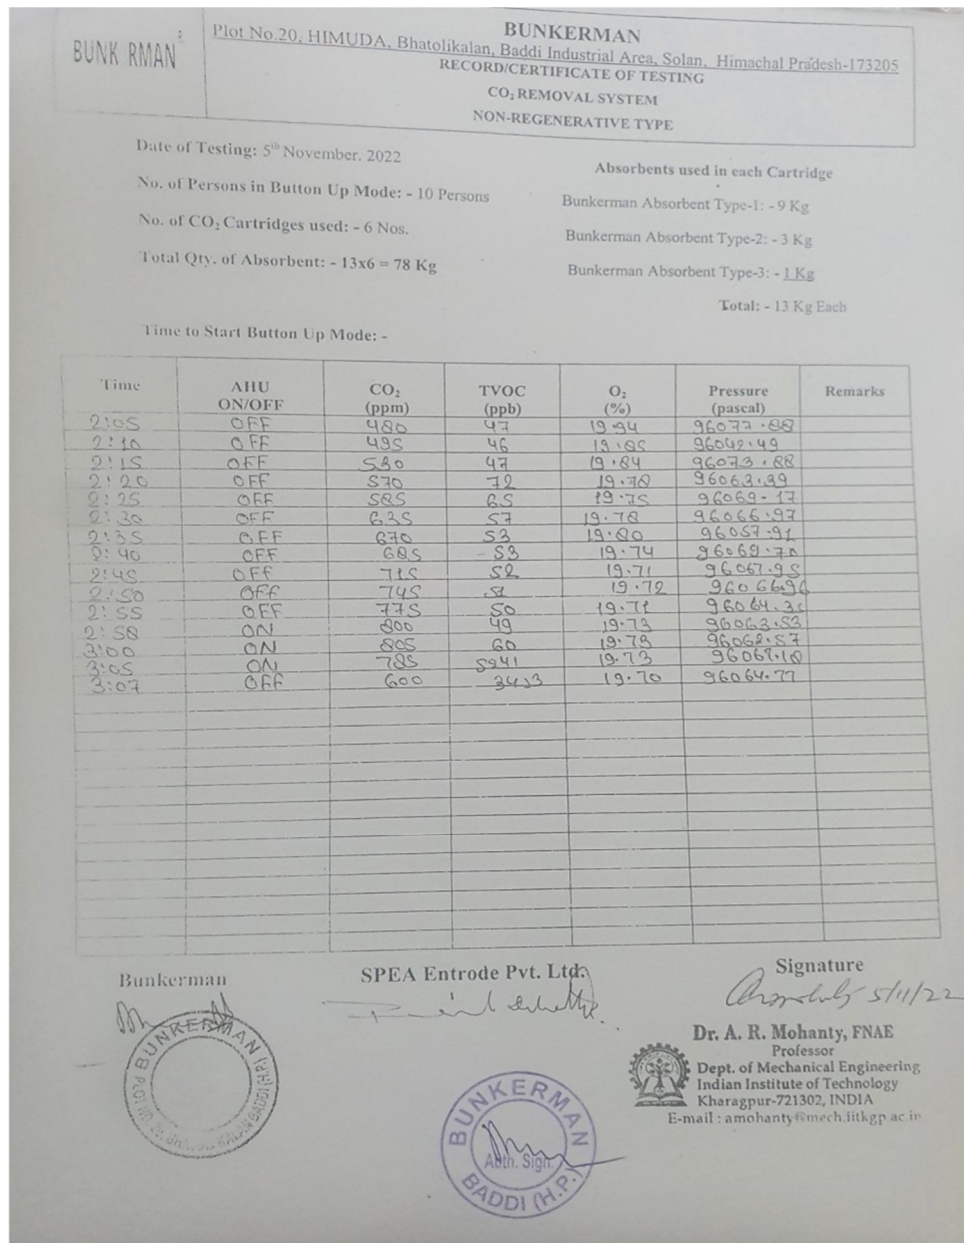 BUNK RMAN
BUNKERMAN
Plot No.20, HIMUDA, Bhatolikalan, Baddi Industrial Area, Solan, Himachal Pradesh-173205
RECORD/CERTIFICATE OF TESTING
CO₂ REMOVAL SYSTEM
NON-REGENERATIVE TYPE
Date of Testing: 5th November. 2022
No. of Persons in Button Up Mode: - 10 Persons
No. of CO₂ Cartridges used: - 6 Nos.
Total Qty. of Absorbent: - 13x6 = 78 Kg
Absorbents used in each Cartridge
Bunkerman Absorbent Type-1: - 9 Kg
Bunkerman Absorbent Type-2: - 3 Kg
Bunkerman Absorbent Type-3: - 1 Kg
Total: - 13 Kg Each
Time to Start Button Up Mode: -
Time AHU ON/OFF CO₂ (ppm) TVOC (ppb) O₂ (%) Pressure (pascal) Remarks
2:05 OFF 480 47 19.94 96077.88
2:10 OFF 495 46 19.85 96042.49
2:15 OFF 530 47 19.84 96073.88
2:20 OFF 570 72 19.78 96063.39
2:25 OFF 585 65 19.75 96069.17
2:30 OFF 635 57 19.78 96066.97
2:35 OFF 670 53 19.80 96057.91
2:40 OFF 685 53 19.74 96069.70
2:45 OFF 715 52 19.71 96067.95
2:50 OFF 745 51 19.72 96066.96
2:55 OFF 775 50 19.71 96064.30
2:58 ON 800 49 19.73 96063.53
3:00 ON 805 60 19.79 96062.57
3:05 ON 785 5941 19.73 96067.18
3:07 OFF 600 19.70 96064.77
Bunkerman
SPEA Entrode Pvt. Ltd.
Signature
5/11/22
Dr. A. R. Mohanty, FNAE
Professor
Dept. of Mechanical Engineering
Indian Institute of Technology
Kharagpur-721302, INDIA
E-mail : amohanty@mech.iitkgp.ac.in
BUNKERMAN
BUNKERMAN
Auth. Sign.
BADDI (H.P.)